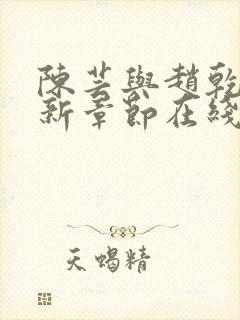 陳芸與趙乾
新章節在綫
天蝎精